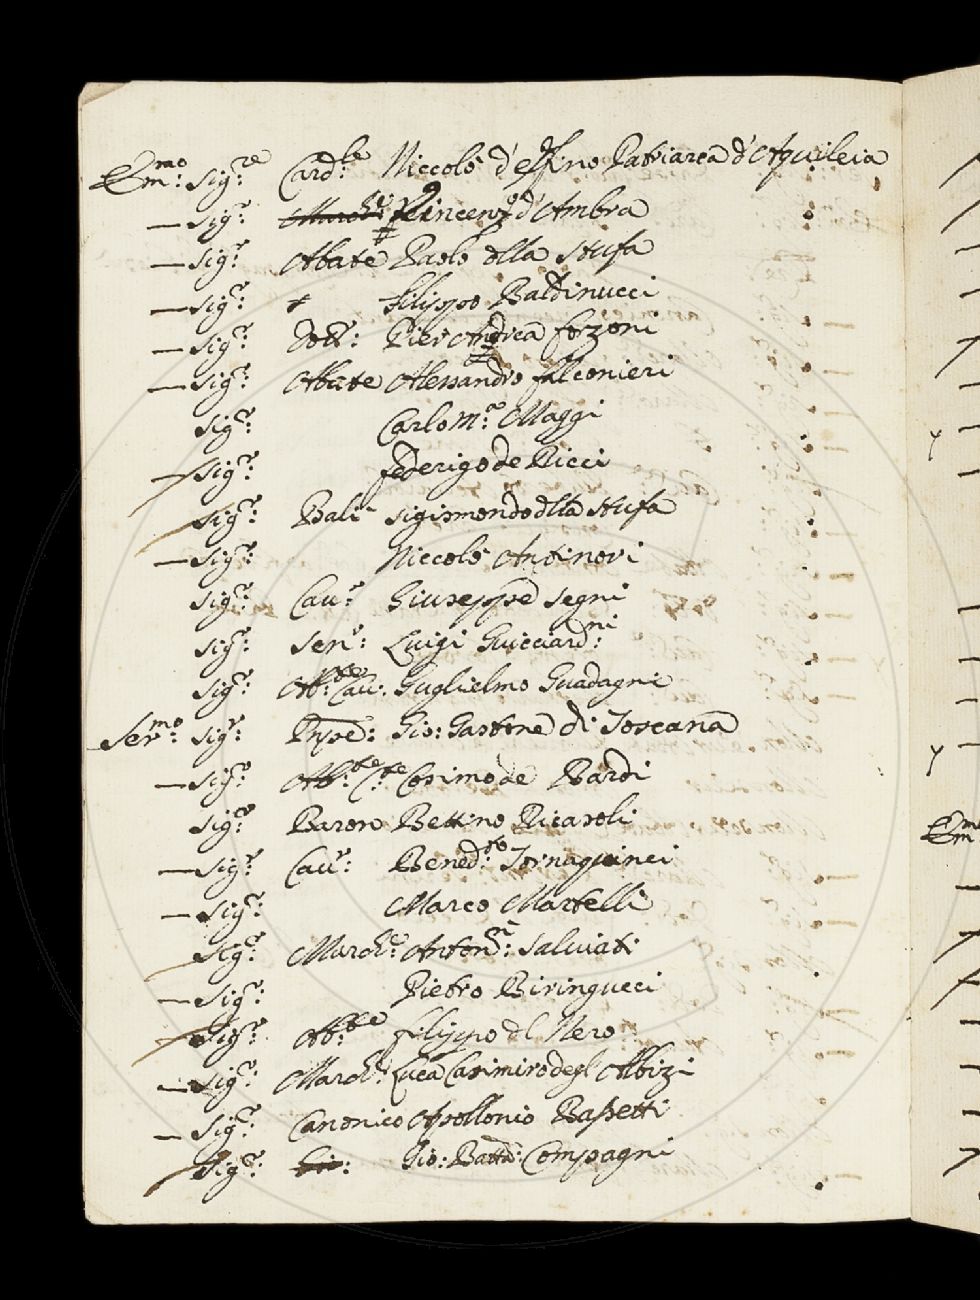 Em.mo Sig.re Card.le Niccolò d'elfino Patriarca d'Aquileia
— Sig.r Vincenz.o d'Ambra
— Sig.r Abate Paolo dlla Stufa
— Sig.r Filippo Baldinucci
— Sig.r Dott.: Pier Andrea forzoni
— Sig.r Abate Alessandro falconieri
Sig.r Carlo M.a Maggi
— Sig.r federigo de Ricci
Sig.r Balì Sigismondo dlla Stufa
— Sig.r Niccolò Antinori
Sig.r Cau.r Giuseppe Segni
Sig.r Sen.r: Luigi Guicciard.ni
Sig.r Ab.te Cau: Guglielmo Guadagni
Ser.mo Sig.r Prpe: Gio: Gastone di Toscana
— Sig.r Ab.te C.te Cosimo de Bardi
Sig.r Baron Bettino Ricasoli
— Sig.r Cau.r: Bened.to Tornaquinci
— Sig.r Marco Martelli
Sig.r March.e Anton: Salviati
— Sig.r: Pietro Biringucci
Sig.r Ab.te filippo dl Nero
— Sig.r: March: Luca Casimiro degl Albizi
— Sig.r: Canonico Apollonio Bassetti
Sig.r: Gio: Batta: Compagni
Em.m